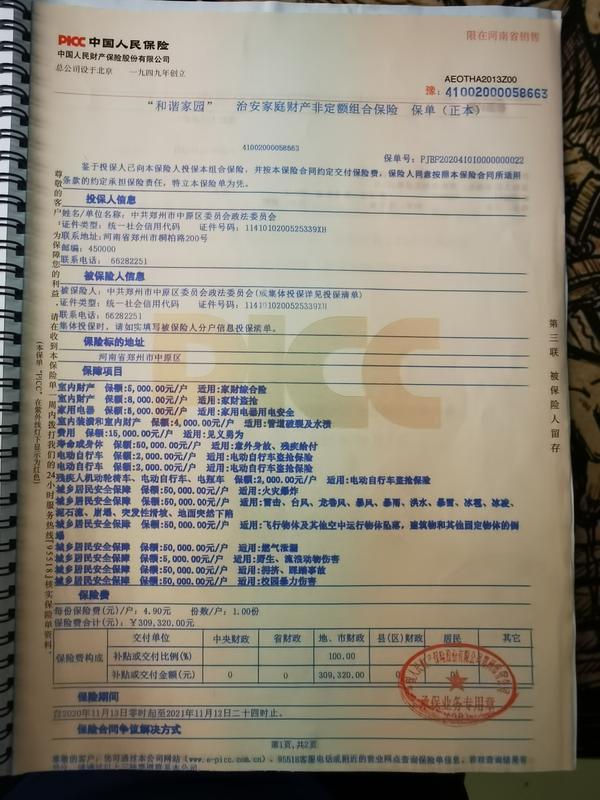 PICC 中国人民保险
中国人民财产保险股份有限公司
总公司设于北京 一九四九年创立
限在河南省销售
AEOTHA2013Z00
豫: 41002000058663
“和谐家园” 治安家庭财产非定额组合保险 保单（正本）
41002000058663
保单号: PJBF202041010000000022
鉴于投保人已向本保险人投保本组合保险，并按本保险合同约定交付保险费，保险人同意按照本保险合同所适用
条款的约定承担保险责任，特立本保险单为凭。
投保人信息
姓名/单位名称: 中共郑州市中原区委员会政法委员会
证件类型: 统一社会信用代码 证件号码: 11410102005253339XH
联系地址:河南省郑州市桐柏路200号
邮编: 450000
联系电话: 66282251
被保险人信息
被保险人: 中共郑州市中原区委员会政法委员会(或集体投保详见投保清单)
证件类型: 统一社会信用代码
联系电话: 66282251
集体投保时，请如实填写被保险人分户信息投保清单。
保险标的地址
河南省郑州市中原区
保障项目
室内财产 保额:5,000.00元/户 适用:家财综合险
室内财产 保额:8,000.00元/户 适用:家财盗抢
家用电器 保额:5,000.00元/户 适用:家用电器用电安全
室内装潢和室内财产 保额:4,000.00元/户 适用:管道破裂及水渍
费用 保额:15,000.00元/户 适用:见义勇为
寿命或身体 保额:50,000.00元/户 适用:意外身故、残疾给付
电动自行车 保额:2,000.00元/户 适用:电动自行车盗抢保险
电动自行车 保额:2,000.00元/户 适用:电动自行车盗抢保险
残疾人机动轮椅车、电动自行车、电瓶车 保额:2,000.00元/户 适用:电动自行车盗抢保险
城乡居民安全保障 保额:50,000.00元/户 适用:火灾爆炸
城乡居民安全保障 保额:50,000.00元/户 适用:雷击、台风、龙卷风、暴风、暴雨、洪水、暴雪、冰雹、冰凌、
泥石流、崖塌、突发性滑坡、地面突然下陷
城乡居民安全保障 保额:50,000.00元/户 适用:飞行物体及其他空中运行物体坠落，建筑物和其他固定物体的倒
塌
城乡居民安全保障 保额:50,000.00元/户 适用:燃气泄漏
城乡居民安全保障 保额:5,000.00元/户 适用:野生、流浪动物伤害
城乡居民安全保障 保额:50,000.00元/户 适用:拥挤、踩踏事故
城乡居民安全保障 保额:50,000.00元/户 适用:校园暴力伤害
保险费
每份保险费(元)/户: 4.90元 份数/户: 1.00份
保险费合计(元): ￥309,320.00元
保险费构成
交付单位 中央财政 省财政 地、市财政 县(区)财政 居民 其它
补贴或交付比例(%) 100.00
补贴或交付金额(元) 0 0 309,320.00
承保业务专用章
保险期间
自2020年11月13日零时起至2021年11月12日二十四时止。
保险合同争议解决方式
第1页,共2页
尊敬的客户: 您可通过本公司网站（www.e-picc.com.cn）、95518客服电话或附近的营业网点查询保险单信息，若对查询结果有
尊敬的客户:为保障您的利益，请在收到本保险单一周内拨打我们的24小时服务热线『95518』核实保险单资料。
(本保单“PICC”在紫外线灯下显示为红色)
第三联 被保险人留存
PICC